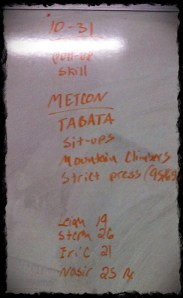 10-31
Pull-up
Skill
METCON
TABATA
Sit-ups
Mountain Climbers
Strict press (95/65
Liam 19
26
Eric 21
Nasir 25 Rx